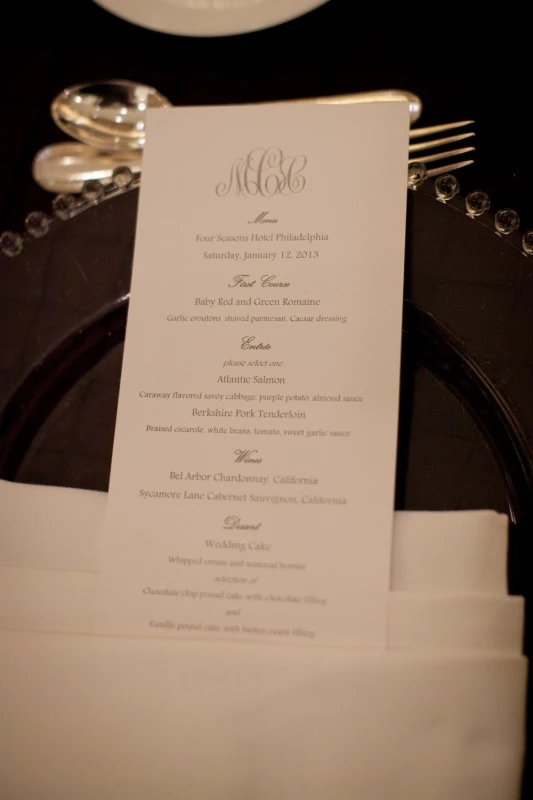 MCC
Menu
Four Seasons Hotel Philadelphia
Saturday, January 12, 2013
First Course
Baby Red and Green Romaine
Garlic croutons, shaved parmesan, Caesar dressing
Entrée
please select one
Atlantic Salmon
Caraway flavored savoy cabbage, purple potato, almond sauce
Berkshire Pork Tenderloin
Braised escarole, white beans, tomato, sweet garlic sauce
Wines
Bel Arbor Chardonnay, California
Sycamore Lane Cabernet Sauvignon, California
Dessert
Wedding Cake
Whipped cream and seasonal berries
selection of
Chocolate chip pound cake with chocolate filling
and
Vanilla pound cake with buttercream filling